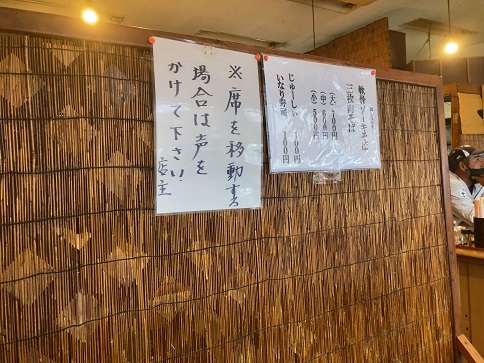 ※席を移動する
場合は声を
かけて下さい
店主
軟骨ソーキそば
三枚肉そば
(大) 700円
(中)
(小) 500円
じゅーしぃ 100円
いなり寿司 100円